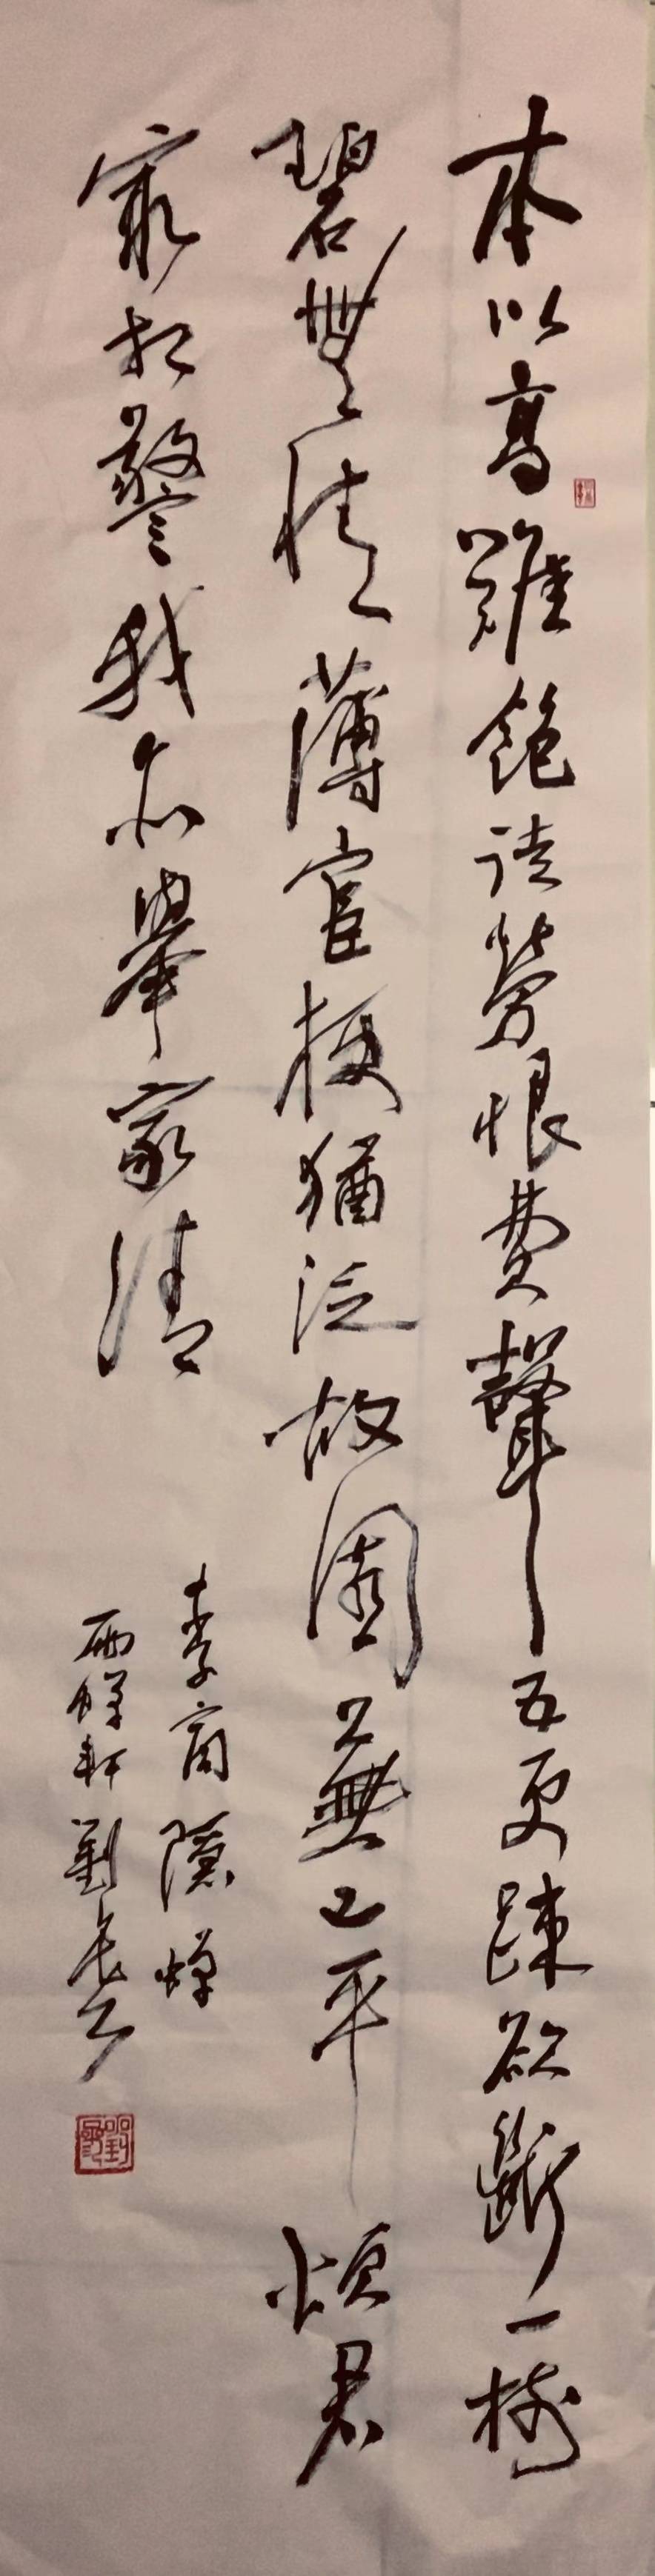 本以高難飽徒勞恨費聲五更疎欲斷一樹
碧無情薄宦梗猶泛故園蕪已平煩君
最相警我亦舉家清
李商隱蟬
雨蟬軒劉